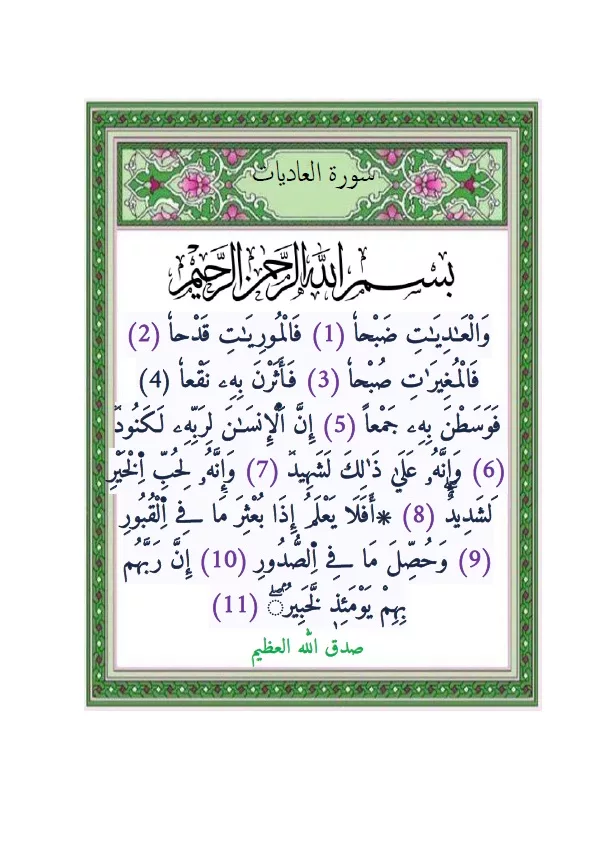 سورة العاديات
بسم الله الرحمن الرحيم
وَالْعَٰدِيَٰتِ ضَبْحاٗ (1) فَالْمُورِيَٰتِ قَدْحاٗ (2)
فَالْمُغِيرَٰتِ صُبْحاٗ (3) فَأَثَرْنَ بِهِۦ نَقْعاٗ (4)
فَوَسَطْنَ بِهِۦ جَمْعاً (5) إِنَّ اَ۬لْإِنسَٰنَ لِرَبِّهِۦ لَكَنُودٞ
(6) وَإِنَّهُۥ عَلَيٰ ذَٰلِكَ لَشَهِيدٞ (7) وَإِنَّهُۥ لِحُبِّ اِ۬لْخَيْرِ
لَشَدِيدٌۖ (8) ۞أَفَلَا يَعْلَمُ إِذَا بُعْثِرَ مَا فِے اِ۬لْقُبُورِ
(9) وَحُصِّلَ مَا فِے اِ۬لصُّدُورِ (10) إِنَّ رَبَّهُم
بِهِمْ يَوْمَئِذٖ لَّخَبِيرُۢۖ (11)
صدق الله العظيم